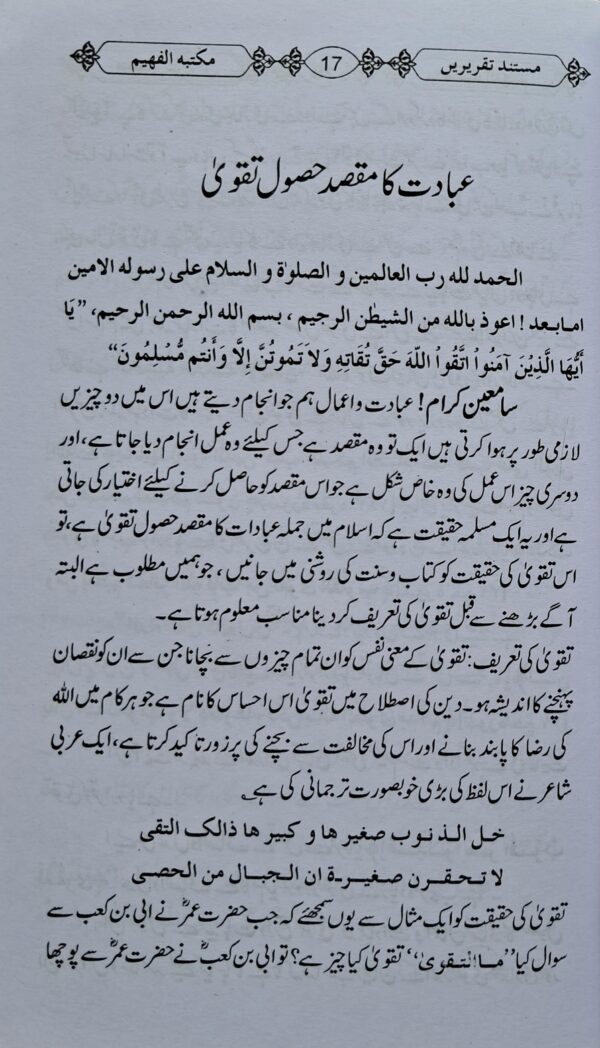 مستند تقریریں 17 مکتبہ الفہیم
عبادت کا مقصد حصول تقویٰ
الحمد لله رب العالمين و الصلوٰة و السلام على رسوله الامين
امابعد ! اعوذ بالله من الشيطٰن الرجيم ، بسم الله الرحمن الرحيم، ”يَا
أَيُّهَا الَّذِيْنَ آمَنُواْ اتَّقُواْ اللّهَ حَقَّ تُقَاتِهِ وَلاَ تَمُوتُنَّ إِلَّا وَأَنتُم مُّسْلِمُونَ“
سامعین کرام! عبادت و اعمال ہم جو انجام دیتے ہیں اس میں دو چیزیں
لازمی طور پر ہوا کرتی ہیں ایک تو وہ مقصد ہے جس کیلئے وہ عمل انجام دیا جاتا ہے، اور
دوسری چیز اس عمل کی وہ خاص شکل ہے جو اس مقصد کو حاصل کرنے کیلئے اختیار کی جاتی
ہے اور یہ ایک مسلمہ حقیقت ہے کہ اسلام میں جملہ عبادات کا مقصد حصول تقویٰ ہے، تو
اس تقویٰ کی حقیقت کو کتاب وسنت کی روشنی میں جانیں ، جو ہمیں مطلوب ہے البتہ
آگے بڑھنے سے قبل تقویٰ کی تعریف کر دینا مناسب معلوم ہوتا ہے۔
تقویٰ کی تعریف: تقویٰ کے معنی نفس کو ان تمام چیزوں سے بچانا جن سے ان کو نقصان
پہنچنے کا اندیشہ ہو۔ دین کی اصطلاح میں تقویٰ اس احساس کا نام ہے جو ہر کام میں اللہ
کی رضا کا پابند بنانے اور اس کی مخالفت سے بچنے کی پرزور تاکید کرتا ہے، ایک عربی
شاعر نے اس لفظ کی بڑی خوبصورت ترجمانی کی ہے ؎
خل الذنوب صغيرها و كبيرها ذالك التقى
لا تحقرن صغيرة ان الجبال من الحصى
تقویٰ کی حقیقت کو ایک مثال سے یوں سمجھئے کہ جب حضرت عمرؓ نے ابی بن کعب سے
سوال کیا ”ما التقوىٰ“ تقویٰ کیا چیز ہے؟ تو ابی بن کعبؓ نے حضرت عمرؓ سے پوچھا